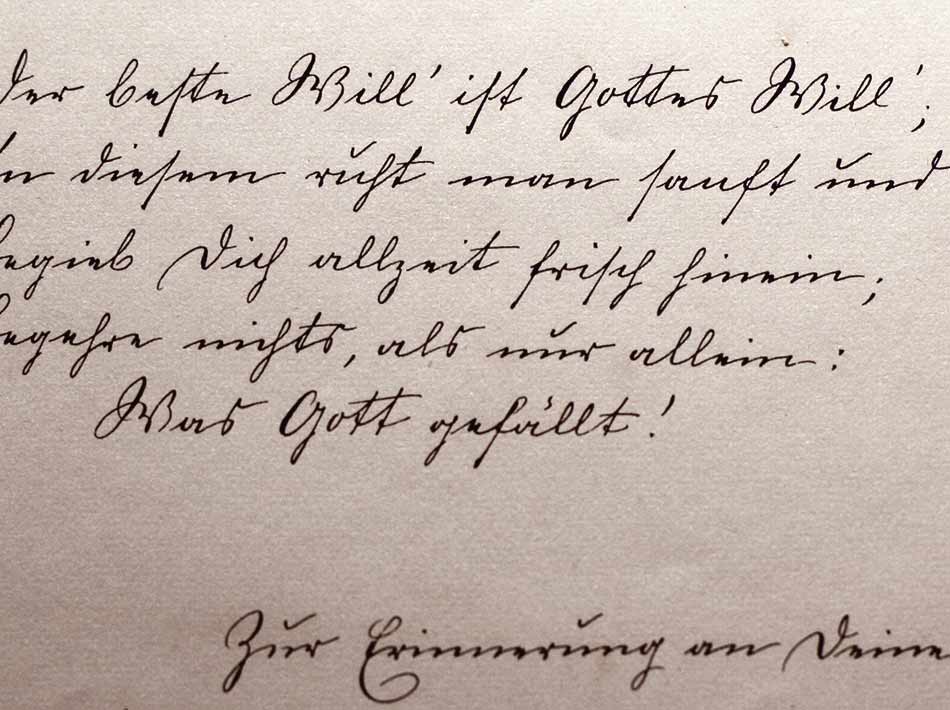 der beste Will' ist Gottes Will';
In diesem ruht man sanft und
begieb Dich allzeit frisch hinein;
begehre nichts, als nur allein:
Was Gott gefällt!
Zur Erinnerung an Deine